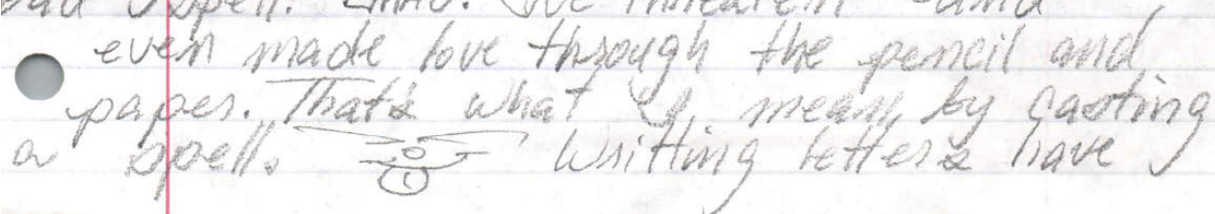 even made love through the pencil and
paper. That's what I mean by casting
a spell. Writting letters have